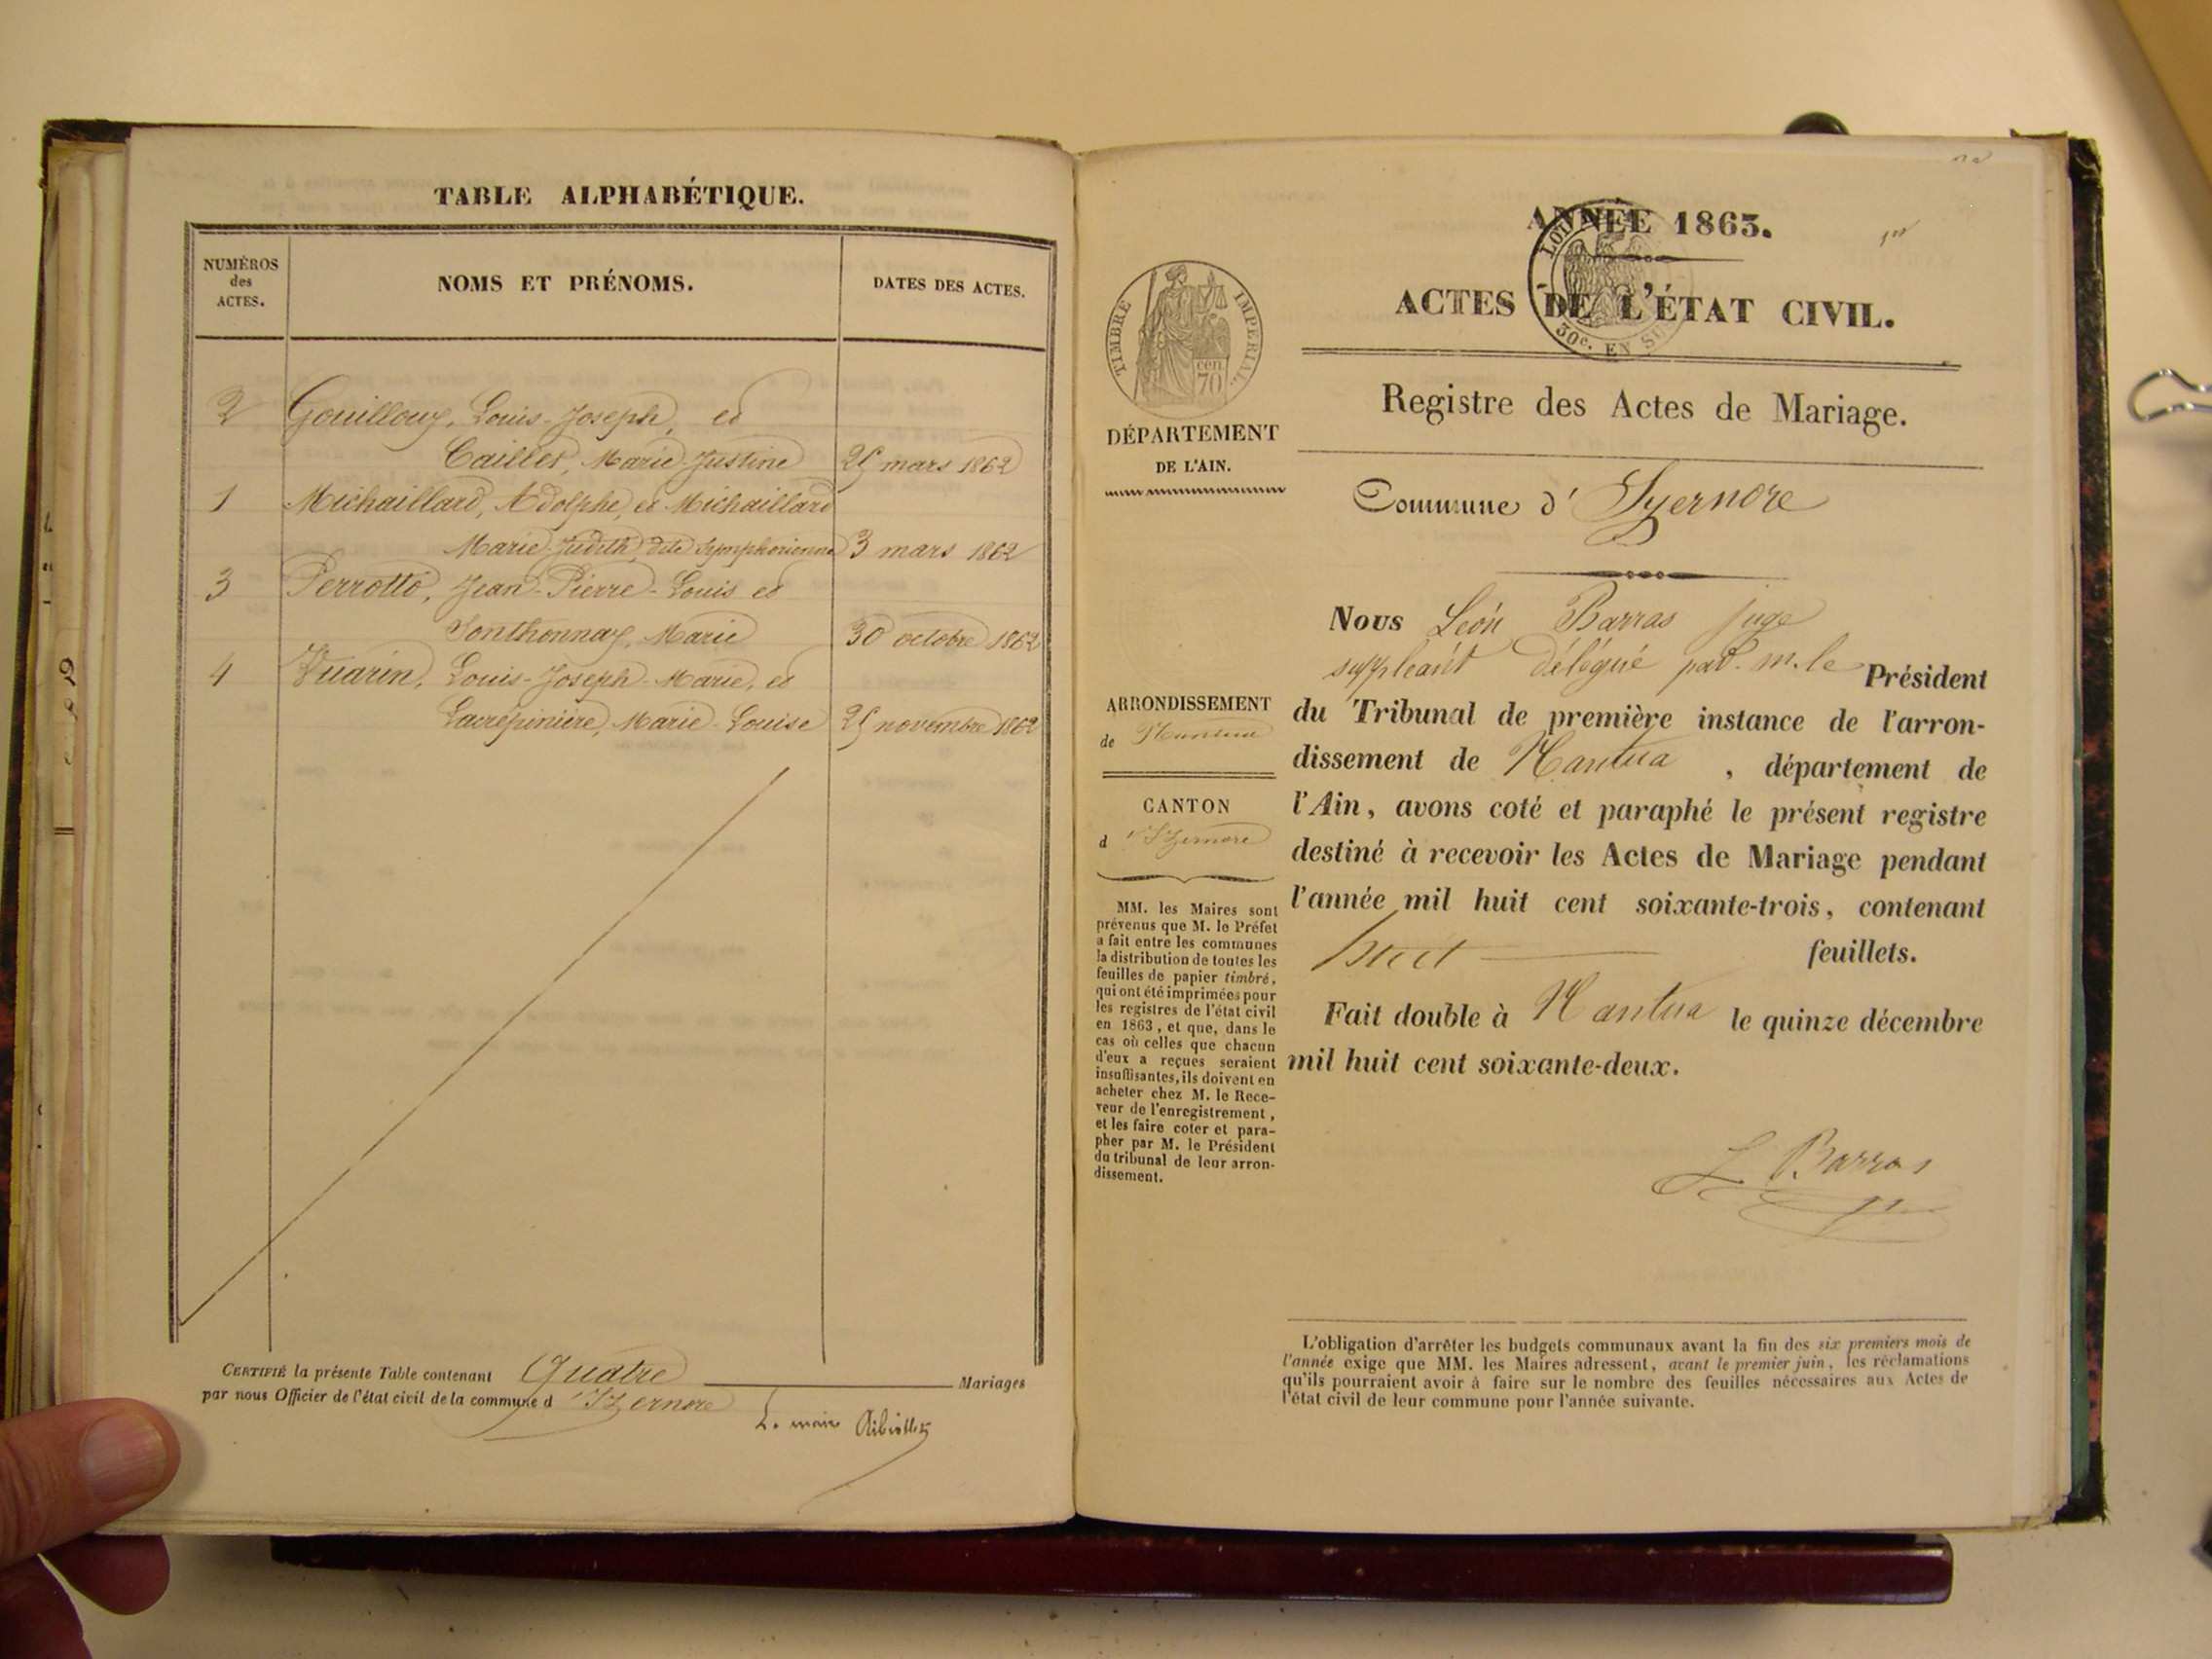 TABLE ALPHABÉTIQUE.
NUMÉROS
des
ACTES.
NOMS ET PRÉNOMS.
DATES DES ACTES.
2 Gouilloux, Louis-Joseph, et
Caillet, Marie-Justine 25 mars 1862
1 Michaillard, Adolphe, et Michaillard
Marie-Judith dite Symphorienne 3 mars 1862
3 Perrotto, Jean-Pierre-Louis et
Sonthonnax, Marie 30 octobre 1862
4 Vuarin, Louis-Joseph-Marie, et
Lacrépinière, Marie-Louise 25 novembre 1862
CERTIFIÉ la présente Table contenant Quatre Mariages
par nous Officier de l'état civil de la commune d 'Izernore
L. maire
ANNÉE 1863.
1er
ACTES DE L'ÉTAT CIVIL.
30c. EN SU
TIMBRE IMPERIAL
cen
70
Registre des Actes de Mariage.
DÉPARTEMENT
DE L'AIN.
Commune d' Izernore
Nous Léon Barras juge
suppléant délégué par m. le Président
du Tribunal de première instance de l'arron-
dissement de Nantua, département de
l'Ain, avons coté et paraphé le présent registre
destiné à recevoir les Actes de Mariage pendant
l'année mil huit cent soixante-trois, contenant
huit feuillets.
Fait double à Nantua le quinze décembre
mil huit cent soixante-deux.
L Barras
ARRONDISSEMENT
de Nantua
CANTON
d 'Izernore
MM. les Maires sont
prévenus que M. le Préfet
a fait entre les communes
la distribution de toutes les
feuilles de papier timbré,
qui ont été imprimées pour
les registres de l'état civil
en 1863, et que, dans le
cas où celles que chacun
d'eux a reçues seraient
insuffisantes, ils doivent en
acheter chez M. le Rece-
veur de l'enregistrement,
et les faire coter et para-
pher par M. le Président
du tribunal de leur arron-
dissement.
L'obligation d'arrêter les budgets communaux avant la fin des six premiers mois de
l'année exige que MM. les Maires adressent, avant le premier juin, les réclamations
qu'ils pourraient avoir à faire sur le nombre des feuilles nécessaires aux Actes de
l'état civil de leur commune pour l'année suivante.